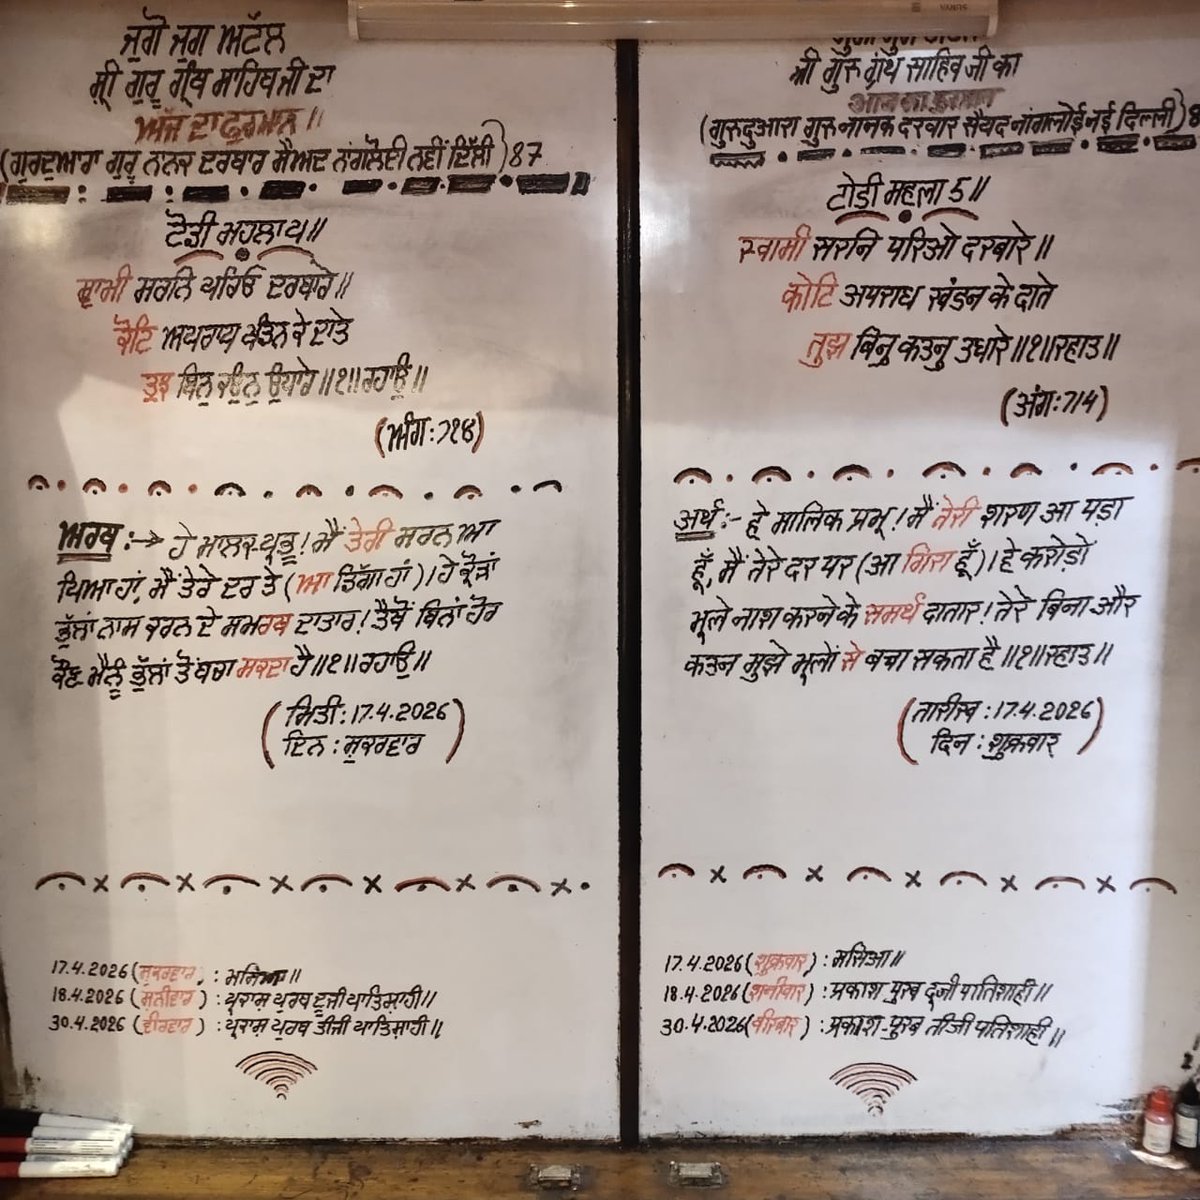 ਜੁਗੋ ਜੁਗ ਅਟੱਲ
ਸ਼੍ਰੀ ਗੁਰੂ ਗ੍ਰੰਥ ਸਾਹਿਬ ਜੀ ਦਾ
ਅੱਜ ਦਾ ਫੁਰਮਾਨ॥
(ਗੁਰਦੁਆਰਾ ਗੁਰੂ ਨਾਨਕ ਦਰਬਾਰ ਸੈਅਦ ਨਾਂਗਲੋਈ ਨਵੀਂ ਦਿੱਲੀ) 87
ਟੋਡੀ ਮਹਲਾ ੫॥
ਸ੍ਵਾਮੀ ਸਰਨਿ ਪਰਿਓ ਦਰਬਾਰੇ॥
ਕੋਟਿ ਅਪਰਾਧ ਖੰਡਨ ਕੇ ਦਾਤੇ
ਤੁਝ ਬਿਨੁ ਕਉਨੁ ਉਧਾਰੇ॥੧॥ਰਹਾਉ॥
(ਅੰਗ: ੭੧੪)
ਅਰਥ :→ ਹੇ ਮਾਲਕ-ਪ੍ਰਭੂ! ਮੈਂ ਤੇਰੀ ਸਰਨ ਆ
ਪਿਆ ਹਾਂ, ਮੈਂ ਤੇਰੇ ਦਰ ਤੇ (ਆ ਡਿੱਗਾ ਹਾਂ)।ਹੇ ਕ੍ਰੋੜਾਂ
ਭੁੱਲਾਂ ਨਾਸ ਕਰਨ ਦੇ ਸਮਰਥ ਦਾਤਾਰ! ਤੈਥੋਂ ਬਿਨਾਂ ਹੋਰ
ਕੌਣ ਮੈਨੂੰ ਭੁੱਲਾਂ ਤੋਂ ਬਚਾ ਸਕਦਾ ਹੈ॥੧॥ਰਹਾਉ॥
(ਮਿਤੀ: 17.4.2026
ਦਿਨ : ਸ਼ੁਕਰਵਾਰ)
17.4.2026 (ਸ਼ੁਕਰਵਾਰ) : ਮਸਿਆ॥
18.4.2026 (ਸ਼ਨੀਵਾਰ) : ਪ੍ਰਕਾਸ਼ ਪੁਰਬ ਦੂਜੀ ਪਾਤਿਸ਼ਾਹੀ॥
30.4.2026 (ਵੀਰਵਾਰ) : ਪ੍ਰਕਾਸ਼ ਪੁਰਬ ਤੀਜੀ ਪਾਤਿਸ਼ਾਹੀ॥
श्री गुरु ग्रंथ साहिब जी का
आज का फ़रमान
(गुरुदुआरा गुरु नानक दरबार सैयद नांगलोई नई दिल्ली) 8
टोडी महला 5॥
स्वामी सरनि परिओ दरबारे॥
कोटि अपराध खंडन के दाते
तुझ बिनु कउनु उधारे॥१॥रहाउ॥
(अंग: 714)
अर्थ :- हे मालिक प्रभू! मैं तेरी शरण आ पड़ा
हूँ, मैं तेरे दर पर (आ गिरा हूँ)।हे करोड़ो
भूले नाश करने के समर्थ दातार! तेरे बिना और
कउन मुझे भूलों से बचा सकता है॥१॥रहाउ॥
(तारीख : 17.4.2026
दिन : शुक्रवार)
17.4.2026 (शुक्रवार) : मसिआ॥
18.4.2026 (शनीवार) : प्रकाश पुरब दूजी पातिशाही॥
30.4.2026 (वीरवार) : प्रकाश-पुरब तीजी पतिशाही॥